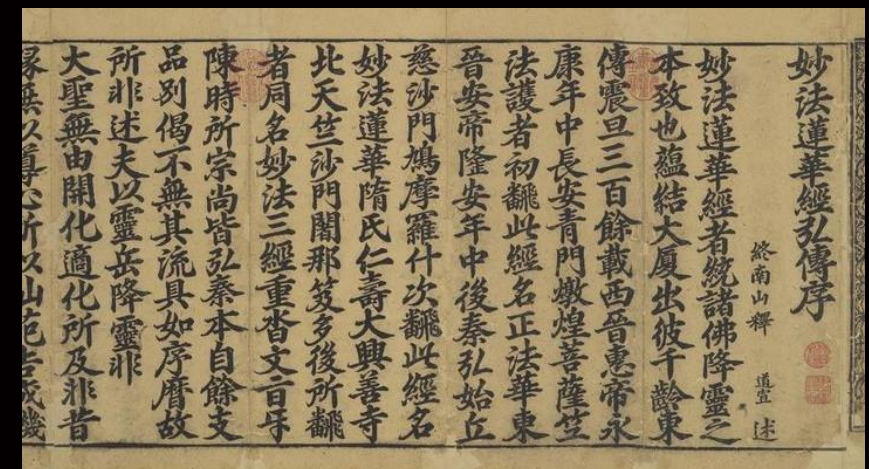 妙法蓮華經弘傳序
終南山釋 道宣 述
妙法蓮華經者統諸佛降靈之
本致也蘊結大厦出彼千齡東
傳震旦三百餘載西晉惠帝永
康年中長安青門燉煌菩薩竺
法護者初翻此經名正法華東
晉安帝隆安年中後秦弘始丘
慈沙門鳩摩羅什次翻此經名
妙法蓮華隋氏仁壽大興善寺
北天竺沙門闍那笈多後所翻
者同名妙法三經重沓文旨互
陳時所宗尚皆弘秦本自餘支
品別偈不無其流具如序曆故
所非述夫以靈岳降靈非
大聖無由開化適化所及非昔
縁無以導心所以仙苑告成機